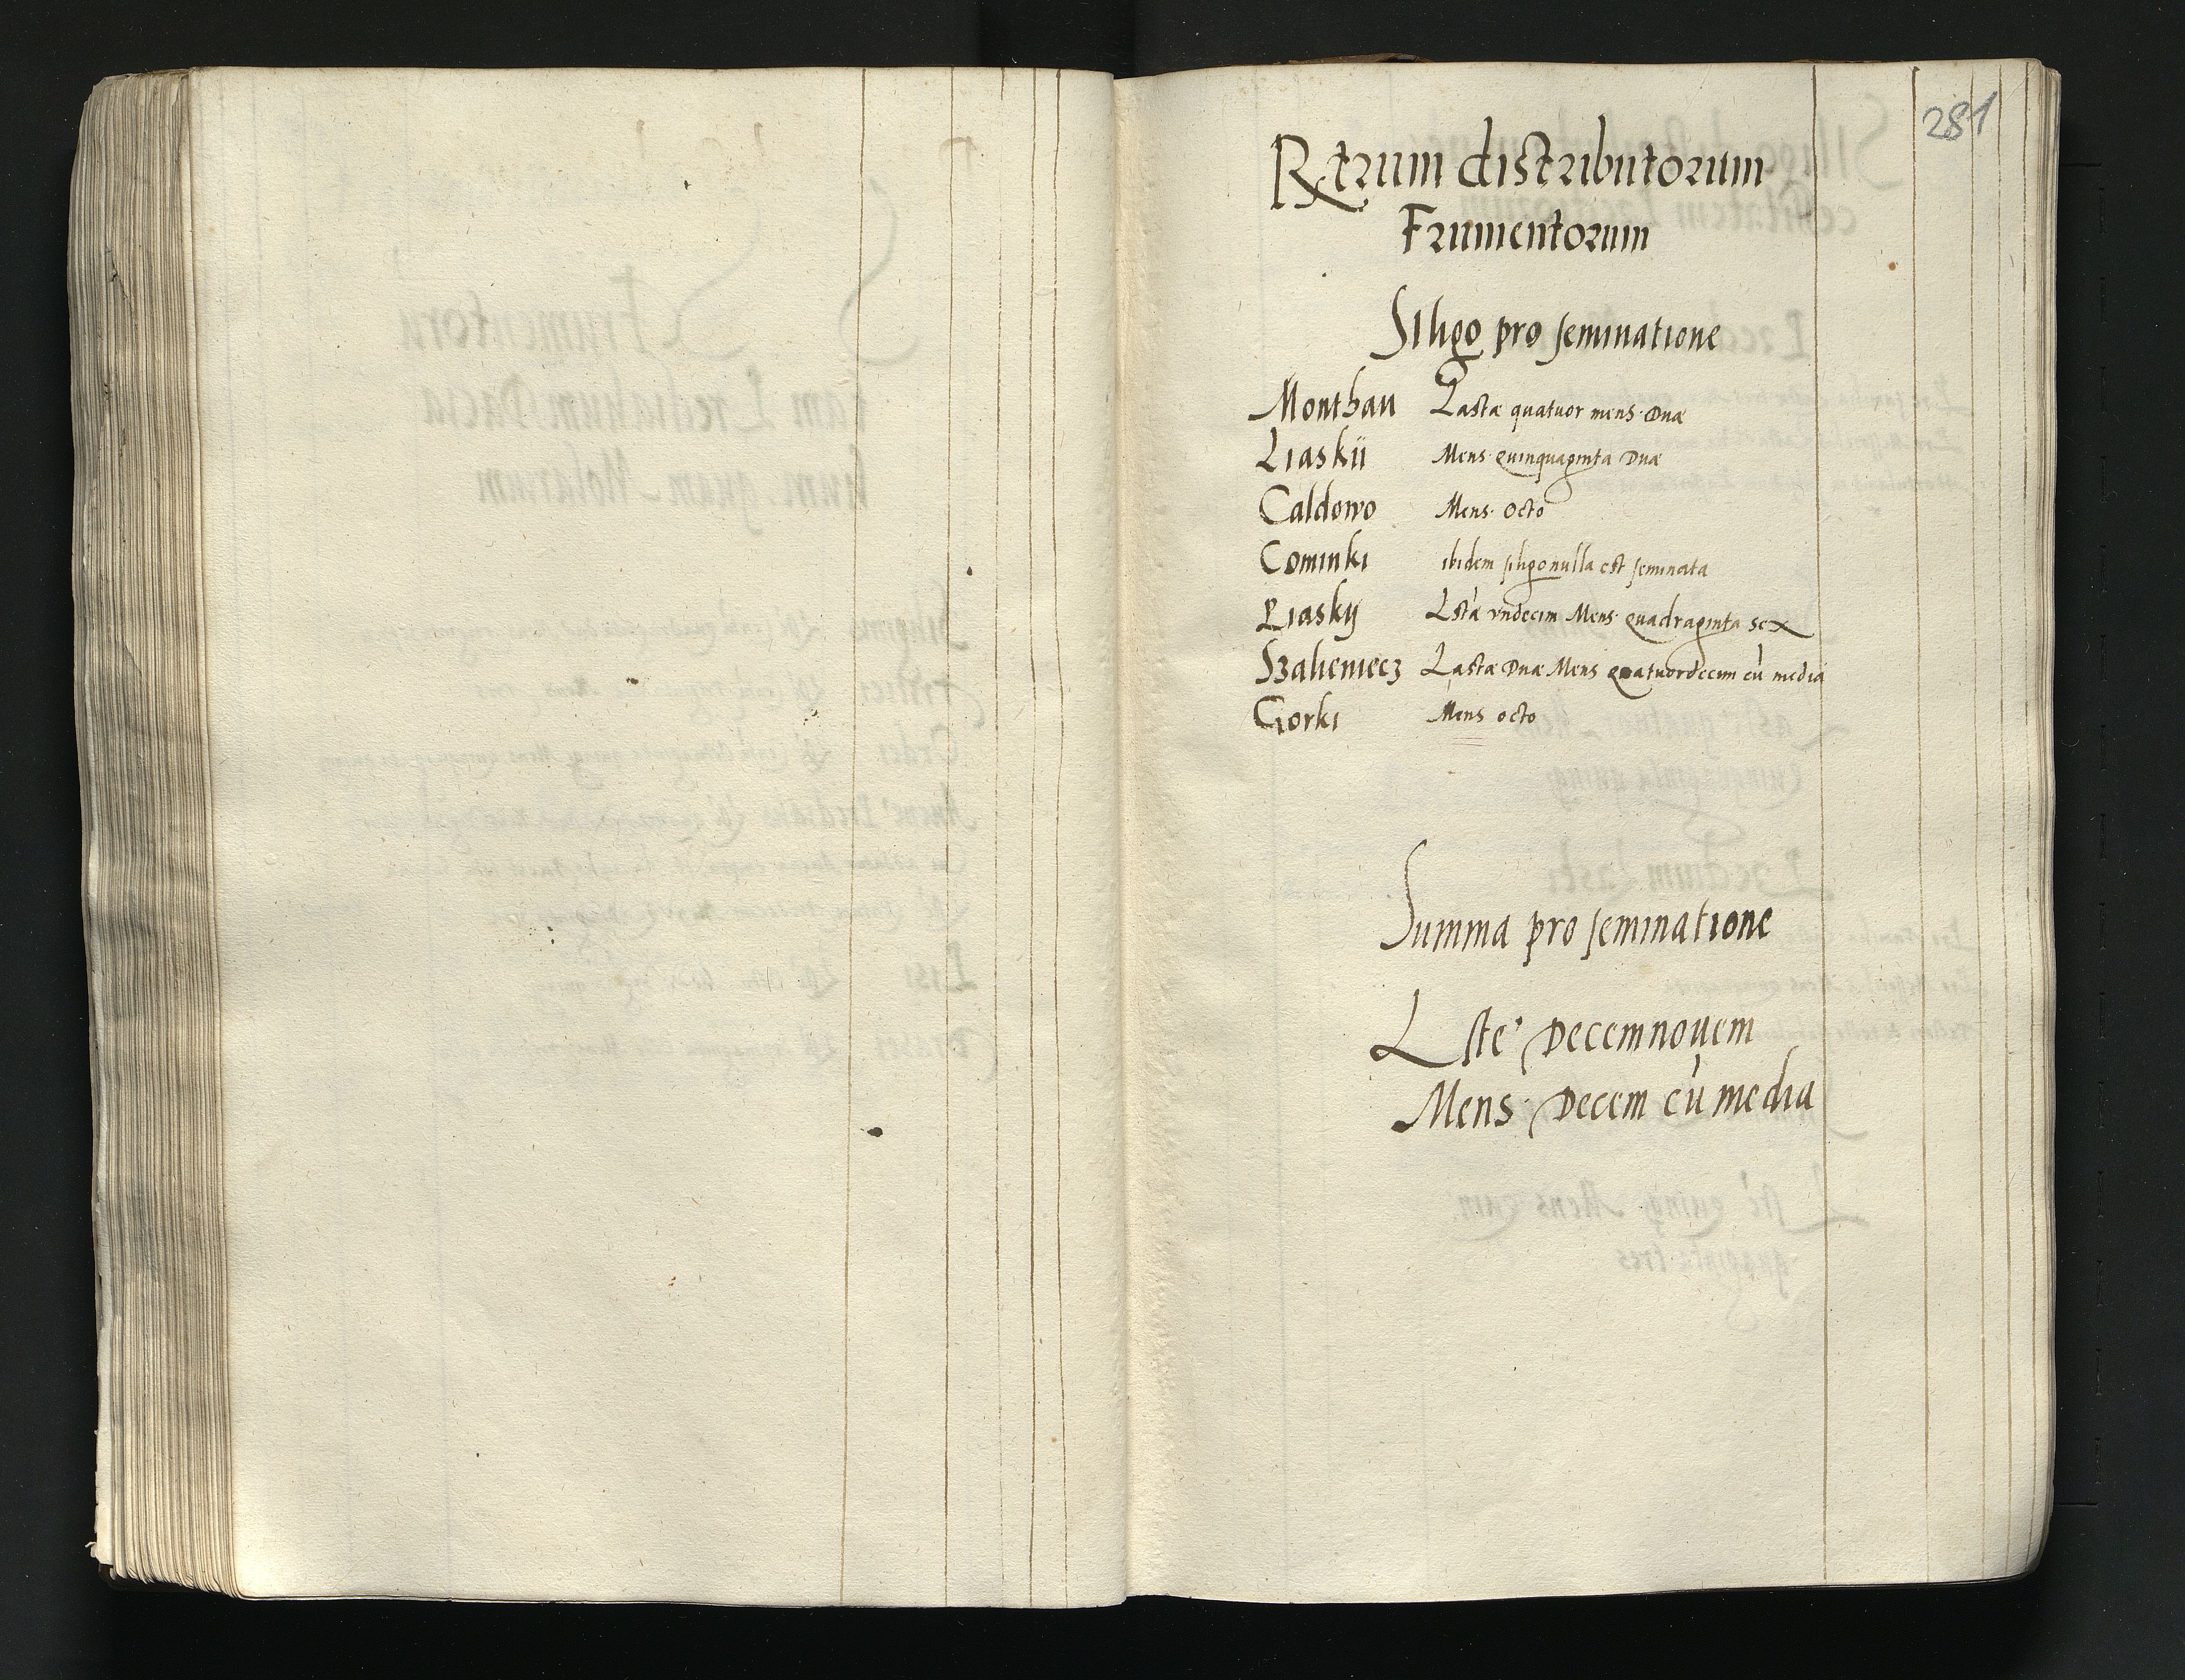 281
Rtrum distributorum
Frumentorum
Siligo pro seminatione
Monthau Lastæ quatuor mens. Duæ
Liaskii Mens. Quinquaginta Duæ
Caldowo Mens. Octo
Cominki ibidem siligo nulla est seminata
Piasky Lstæ vndecim Mens. quadraginta sex
Szalieniecz Lastæ Duæ Mens quatuordecim cũ media
Gorki Mens octo
Summa pro seminatione
Lste Decemnovem
Mens. Decem cũ media